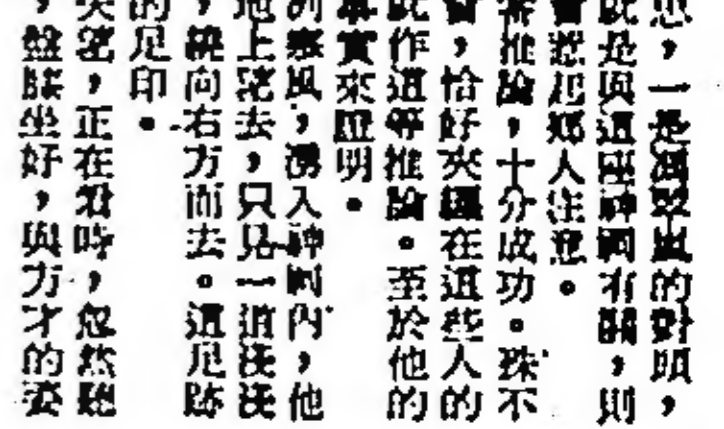 思,一是馮翠嵐的對頭,
就是與這座神祠有關,則
會惹起鄰人注意。
番推論,十分成功。殊不
會,恰好夾雜在這些人的
就作這等推論。至於他的
事實來證明。
冽寒風,湧入神祠內,他
地上望去,只見一道淺淺
,繞向右方而去。這足跡
的足印。
失望,正在獃時,忽然聽
,盤膝坐好,與方才的姿